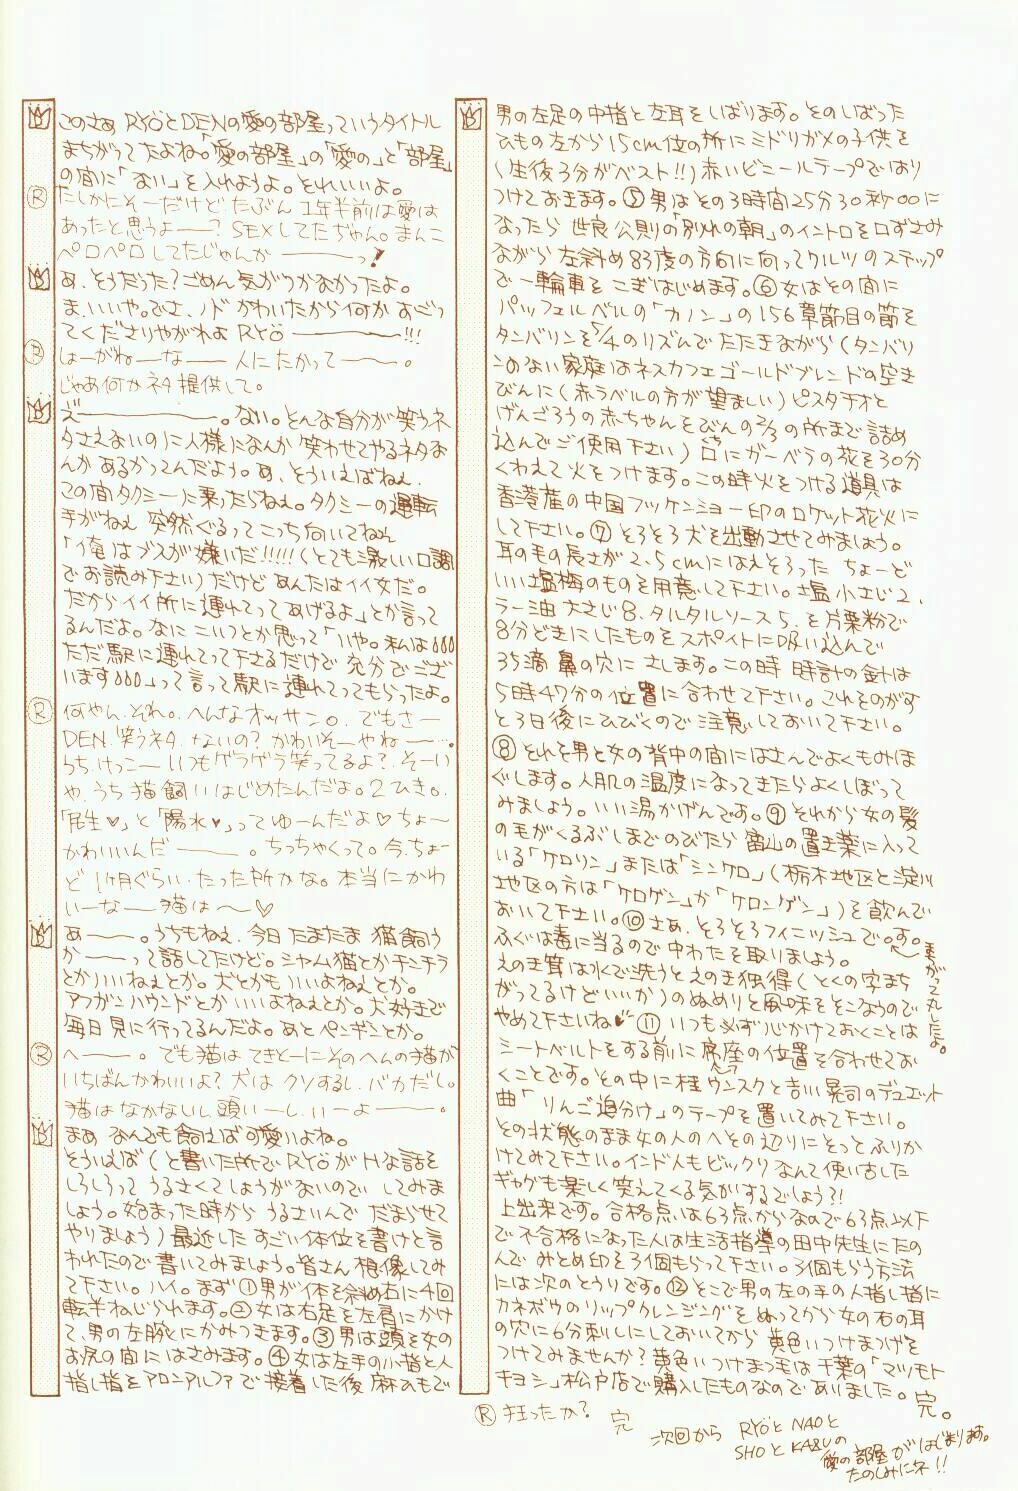 このさぁ RYÖとDENの愛の部屋っていうタイトル
まちがってたよね。「愛の部屋」の「愛の」と「部屋」
の間に「ない」を入れようよ。それいいよ。
Ⓡ
たしかにそーだけど、たぶん 1年半前は愛は
あったと思うよ――? SEXしてたぢゃん。まんこ
ペロペロしてたじゃんか――っ!
あ、そうだった?ごめん気がつかなかったよ。
ま、いいや。でさ、ノドかわいたから何かおごっ
てくださりやがれよ RYÖ――――!!!
Ⓡ
しょーがねーなー 人にたかって――。
じゃあ何かネタ提供して。
え――――。ない。そんな自分が笑うネ
タさえないのに人様になんか笑わせてやるネタな
んかあるかってんだよう。あ、そういえばねぇ、
この間タクシーに乗ったらねぇ。タクシーの運転
手がねぇ 突然ぐるってこっち向いてねぇ
「俺はブスが嫌いだ!!!!!(とても激しい口調
でお読み下さい)だけどあんたはイイ女だ。
だからイイ所に連れてってあげるよ」とか言って
るんだよ。なにこいつとか思って「いや。私は
ただ駅に連れてって下さるだけで充分でござ
います」って言って駅に連れてってもらったよ。
Ⓡ
何やん、それ。へんなオッサン。でもさー
DEN、笑うネタ、ないの?かわいそーやねー…。
うち、けっこーいつもゲラゲラ笑ってるよ?そーい
や、うち猫飼いはじめたんだよ。2ひき。
「民生♥」と「陽水♥」ってゆーんだよ♡ちょ~
かわいいんだ――。ちっちゃくって。今、ちょー
ど1ヶ月ぐらいたった所かな。本当にかわ
いーなー猫は~♡
あ――。うちもねぇ、今日たまたま猫飼う
か――って話してたけど。シャム猫とかチンチラ
とかいいねぇとか。犬とかもいいよねぇとか。
アフガンハウンドとかいいよねぇとか。犬好きで
毎日見に行ってるんだよ。あとペンギンとか。
Ⓡ
へ――。でも猫はてきとーにそのヘんの猫が
いちばんかわいいよ?犬はクソするし、バカだし。
猫はなかないし、頭いーし、いーよ――。
まぁ なんでも飼えば可愛いよね。
そういえば(と書いた所でRYÖがHな話を
しろしろってうるさくてしょうがないので してみま
しょう。始まった時からうるさいんでだまらせて
やりましょう)最近したすごい体位を書けと言
われたので書いてみましょう。皆さん想像してみ
て下さい。ハイ。まず①男が体を斜め右に4回
転半ねじられます。②女は右足を左肩にかけ
て、男の左腕にかみつきます。③男は頭を女の
お尻の間にはさみます。④女は左手の小指と人
指し指をアロンアルファで接着した後 麻ひもで
男の左足の中指と左耳をしばります。そのしばった
ひもの左から15cm位の所にミドリガメの子供を
(生後3分がベスト!!)赤いビニールテープではり
つけておきます。⑤男はその3時間25分30秒00に
なったら 世良公則の「別れの朝」のイントロを口ずさみ
ながら左斜め83度の方向に向ってワルツのステップ
で一輪車をこぎはじめます。⑥女はその間に
パッフェルベルの「カノン」の156章節目の節を
タンバリンを5/4のリズムでたたきながら(タンバリ
ンのない家庭はネスカフェゴールドブレンドの空き
びんに(赤ラベルの方が望ましい)ピスタチオと
げんごろうの赤ちゃんをびんの2/3の所まで詰め
込んでご使用下さい)口にガーベラの花を30分
くわえて火をつけます。この時火をつける道具は
香港産の中国フッケンショー印のロケット花火に
して下さい。⑦そろそろ犬を出動させてみましょう。
耳の毛の長さが2.5cmにはえそろった ちょーど
いい塩梅のものを用意して下さい。塩小さじ2、
ラー油大さじ8、タルタルソース5、を片栗粉で
8分どきにしたものをスポイトに吸い込んで
35滴鼻の穴にさします。この時 時計の針は
5時47分の位置に合わせて下さい。これをのがす
と3日後にひびくので注意しておいて下さい。
⑧それを男と女の背中の間にはさんでよくもみほ
ぐします。人肌の温度になってきたらよくしぼって
みましょう。いい湯かげんです。⑨それから女の髪
の毛がくるぶしまでのびたら富山の置き薬に入って
いる「ケロリン」または「シンケロ」(栃木地区と淀川
地区の方は「ケロゲン」か「ケロンゲン」)を飲んで
おいて下さい。⑩さぁ、そろそろフィニッシュです。
ふぐは毒に当るので中わたを取りましょう。
えのき茸は水で洗うとえのき独得(とくの字まち
がってるけどいいか)のぬめりと風味をそこなうので
やめて下さいね♥⑪いつも必ず心かけておくことは
シートベルトをする前に座の位置を合わせてお
くことです。その中に桂ウンスクと吉川晃司のデュエット
曲「りんご追分け」のテープを置いてみて下さい。
その状態のまま女の人のへその辺りにそっとふりか
けてみて下さい。インド人もビックリなんて使い古した
ギャグも楽しく笑えてくる気がするでしょう?!
上出来です。合格点は63点からなので63点以下
で不合格になった人は生活指導の田中先生にたの
んでみとめ印を3個もらって下さい。3個もらう方法
には次のとうりです。⑫そこで男の左の手の人指し指に
カネボウのリップクレンジングをぬってから女の右の耳
の穴に6分刺しにしておいてから 黄色いつけまつげを
つけてみませんか?黄色いつけまつ毛は千葉の「マツモト
キヨシ」松戸店で購入したものなのでありました。完。
Ⓡ狂ったか? 完
次回から RYÖとNAOと
SHOとKAZUの
愛の部屋がはじまります。
たのしみにネ!!